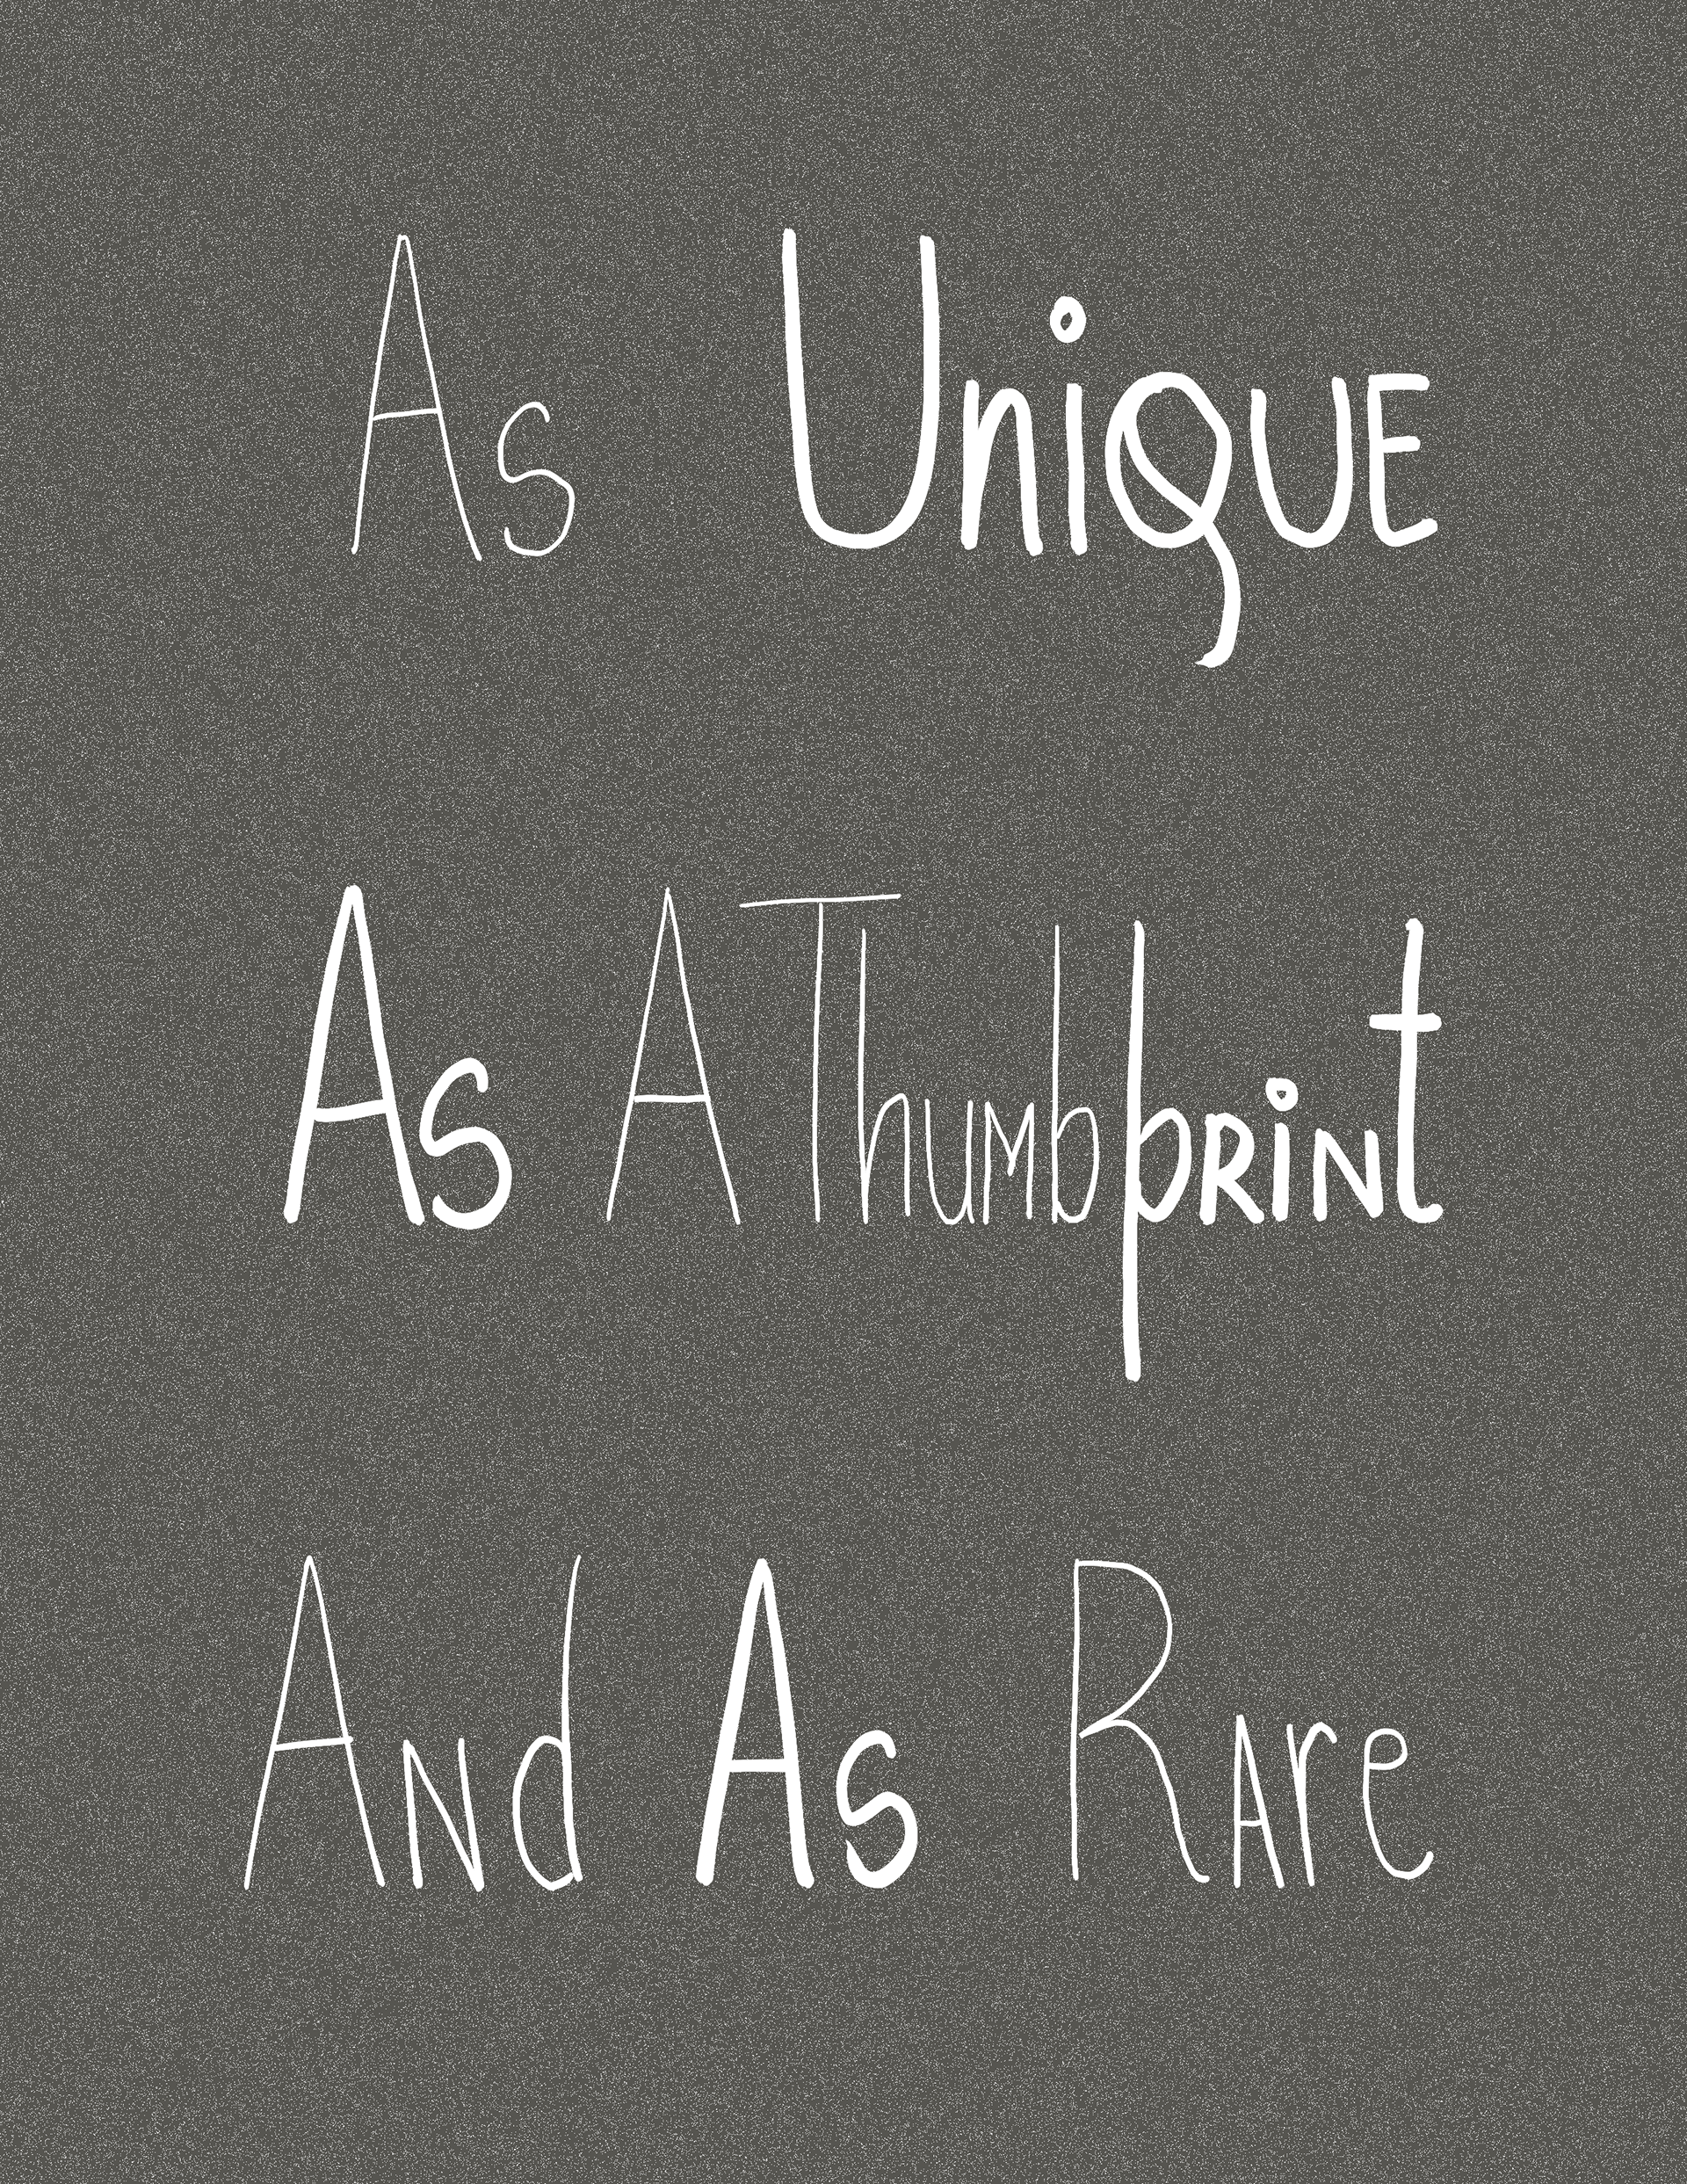 As UniQUE
As A ThumbpRiNt
ANd As RAre